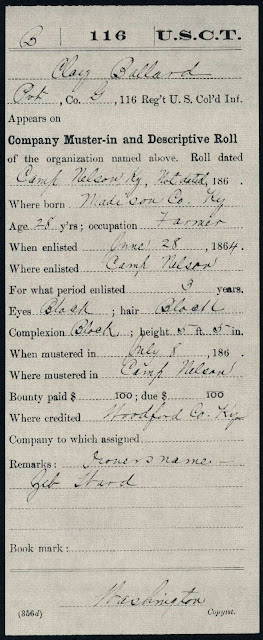 B | 116 | U.S.C.T.
Clay Ballard
Pvt, Co. G, 116 Reg't U. S. Col'd Inf.
Appears on
Company Muster-in and Descriptive Roll
of the organization named above. Roll dated
Camp Nelson Ky, Not dated, 186 .
Where born Madison Co. Ky
Age 28 y'rs; occupation Farmer
When enlisted June 28, 1864.
Where enlisted Camp Nelson
For what period enlisted 3 years.
Eyes Black; hair Black
Complexion Black; height 5 ft. 5 in.
When mustered in July 8, 186 .
Where mustered in Camp Nelson
Bounty paid $ 100; due $ 100
Where credited Woodford Co. Ky
Company to which assigned
Remarks: Owners name
Zeb Ward
Book mark:
Washington
(356d) Copyist.